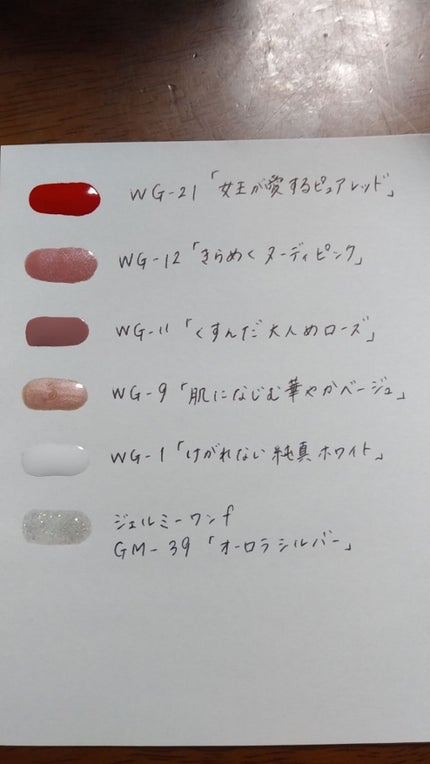 WG-21 「女王が愛するピュアレッド」
WG-12 「きらめくヌーディピンク」
WG-11 「くすんだ大人めローズ」
WG-9 「肌になじむ華やかベージュ」
WG-1 「けがれない純真ホワイト」
ジェルミーワンf
GM-39 「オーロラシルバー」